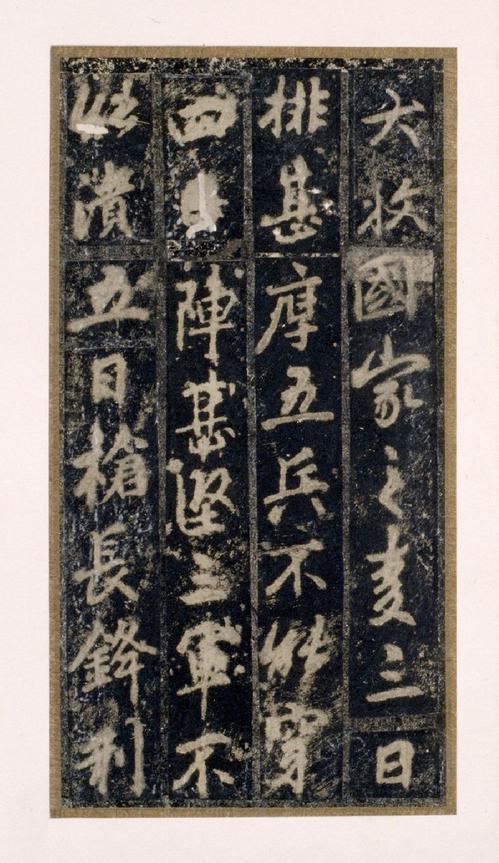 大收國家之麦三曰
排甚厚五兵不能穿
四陣甚堅三軍不
能潰五曰槍長鋒利